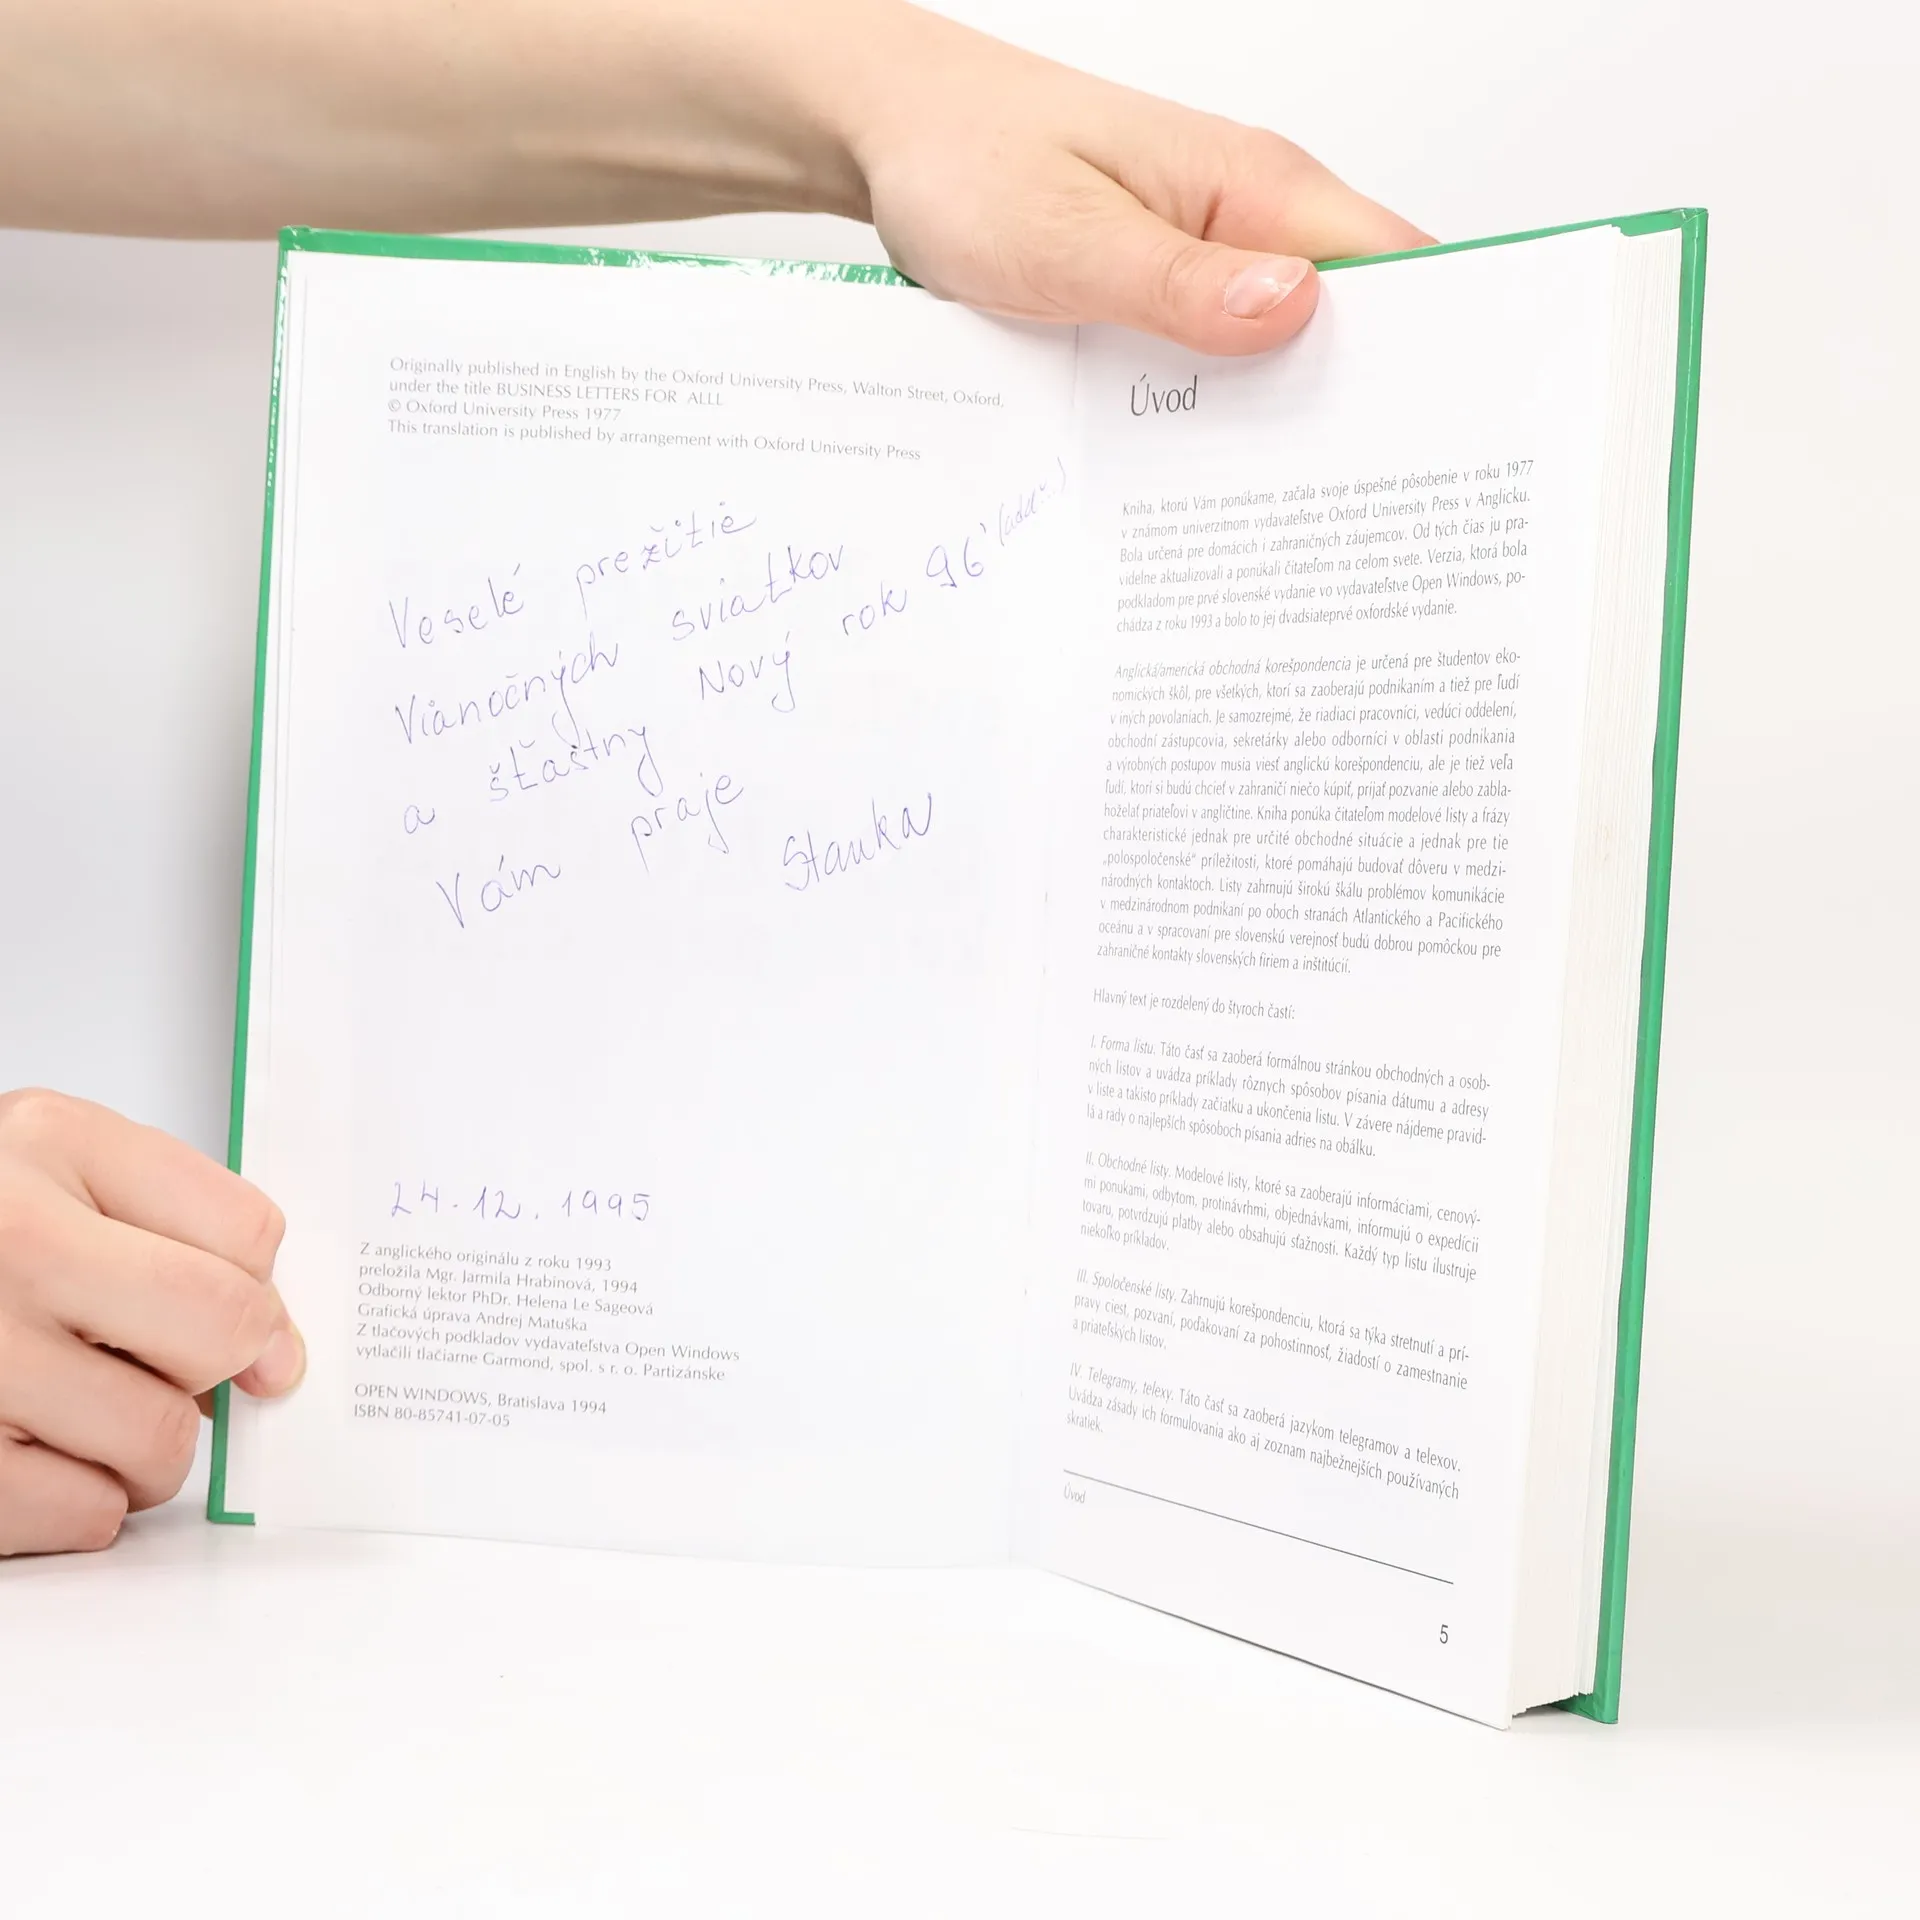 Originally published in English by the Oxford University Press, Walton Street, Oxford,
under the title BUSINESS LETTERS FOR ALLL
© Oxford University Press 1977
This translation is published by arrangement with Oxford University Press
Veselé prežitie
Vianočných sviatkov
a šťastny Nový rok 96'
Vám praje
Stanka
24.12.1995
Z anglického originálu z roku 1993
preložila Mgr. Jarmila Hrabinová, 1994
Odborný lektor PhDr. Helena Le Sageová
Grafická úprava Andrej Matuška
Z tlačových podkladov vydavateľstva Open Windows
vytlačili tlačiarne Garmond, spol. s r. o. Partizánske
OPEN WINDOWS, Bratislava 1994
ISBN 80-85741-07-05
Úvod
Kniha, ktorú Vám ponúkame, začala svoje úspešné pôsobenie v roku 1977
v známom univerzitnom vydavateľstve Oxford University Press v Anglicku.
Bola určená pre domácich i zahraničných záujemcov. Od tých čias ju pra-
videlne aktualizovali a ponúkali čitateľom na celom svete. Verzia, ktorá bola
podkladom pre prvé slovenské vydanie vo vydavateľstve Open Windows, po-
chádza z roku 1993 a bolo to jej dvadsiateprvé oxfordské vydanie.
Anglická/americká obchodná korešpondencia je určená pre študentov eko-
nomických škôl, pre všetkých, ktorí sa zaoberajú podnikaním a tiež pre ľudí
v iných povolaniach. Je samozrejmé, že riadiaci pracovníci, vedúci oddelení,
obchodní zástupcovia, sekretárky alebo odborníci v oblasti podnikania
a výrobných postupov musia viesť anglickú korešpondenciu, ale je tiež veľa
ľudí, ktorí si budú chcieť v zahraničí niečo kúpiť, prijať pozvanie alebo zabla-
hoželať priateľovi v angličtine. Kniha ponúka čitateľom modelové listy a frázy
charakteristické jednak pre určité obchodné situácie a jednak pre tie
„polospoločenské“ príležitosti, ktoré pomáhajú budovať dôveru v medzi-
národných kontaktoch. Listy zahrnujú širokú škálu problémov komunikácie
v medzinárodnom podnikaní po oboch stranách Atlantického a Pacifického
oceánu a v spracovaní pre slovenskú verejnosť budú dobrou pomôckou pre
zahraničné kontakty slovenských firiem a inštitúcií.
Hlavný text je rozdelený do štyroch častí:
I. Forma listu. Táto časť sa zaoberá formálnou stránkou obchodných a osob-
ných listov a uvádza príklady rôznych spôsobov písania dátumu a adresy
v liste a takisto príklady začiatku a ukončenia listu. V závere nájdeme pravid-
lá a rady o najlepších spôsoboch písania adries na obálku.
II. Obchodné listy. Modelové listy, ktoré sa zaoberajú informáciami, cenový-
mi ponukami, odbytom, protinávrhmi, objednávkami, informujú o expedícii
tovaru, potvrdzujú platby alebo obsahujú sťažnosti. Každý typ listu ilustruje
niekoľko príkladov.
III. Spoločenské listy. Zahrnujú korešpondenciu, ktorá sa týka stretnutí a prí-
pravy ciest, pozvaní, poďakovaní za pohostinnosť, žiadostí o zamestnanie
a priateľských listov.
IV. Telegramy, telexy. Táto časť sa zaoberá jazykom telegramov a telexov.
Uvádza zásady ich formulovania ako aj zoznam najbežnejších používaných
skratiek.
Úvod
5